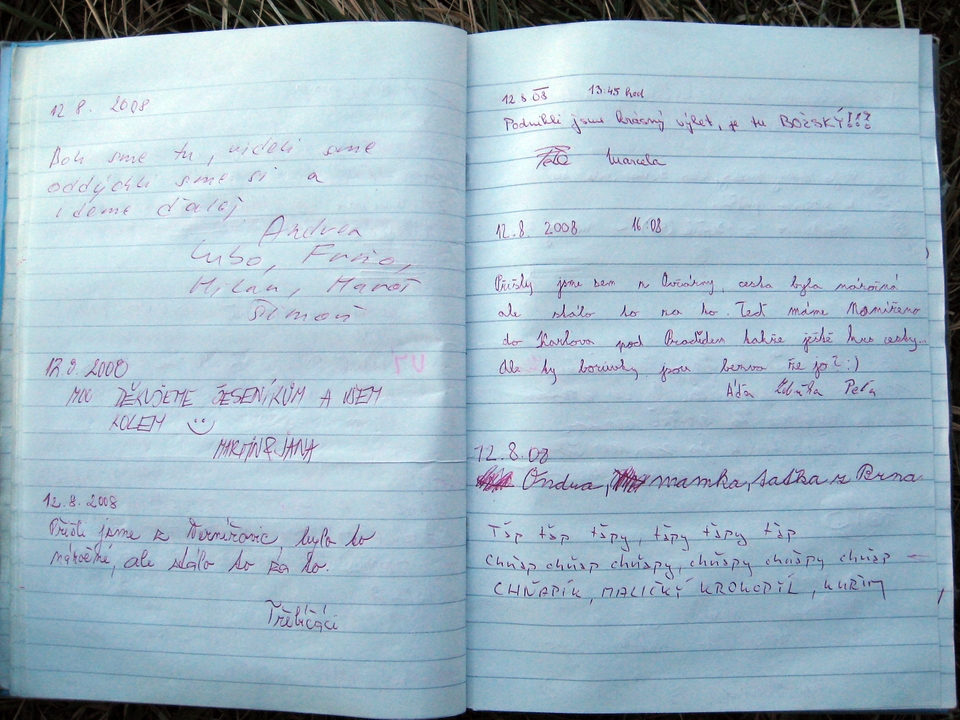 12 8. 2008
Boli sme tu, videli sme
oddýchli sme si a
ideme ďalej
Andrea
Ľubo,
Milan, Maroš
Šimon
12.8.2008
MOC DĚKUJEME JESENÍKŮM A VŠEM
KOLEM
MARTIN & JANA
12.8.2008
Přišli jsme z Vernířovic, bylo to
náročné, ale stálo to za to.
Třebíčáci
12 8 08 13:45 hod
Podnikli jsme krásný výlet, je tu BOŽSKÝ!!!
Marcela
12.8. 2008 16:08
Přišly jsme sem z Ovčárny, cesta byla náročná
ale stálo to za to. Teď máme namířeno
do Karlova pod Pradědem takže ještě kus cesty...
Ale ty borůvky jsou bezva že jo?:)
Peťa
12.8.08
Ondra, mamka, taťka z Brna
Ťáp ťáp ťápy, ťápy ťápy ťáp
chňap chňap chňapy, chňapy chňapy chňap
CHŇAPÍK, MALIČKÝ KROKODÝL, KUŘIM